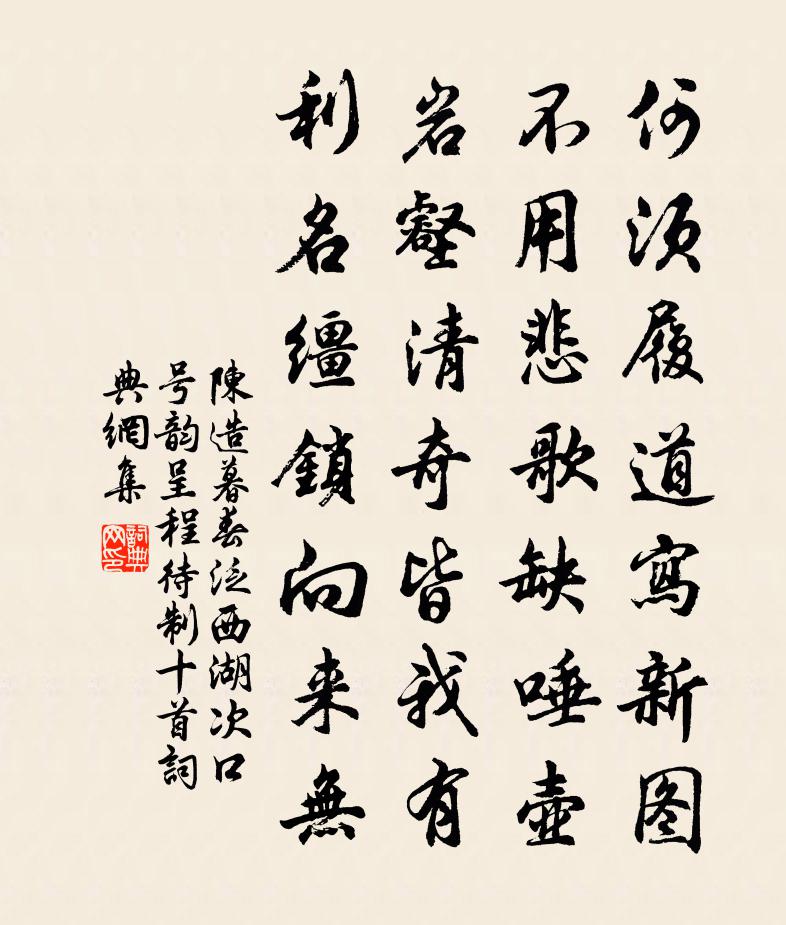 何須履道寫新图
不用悲歌缺唾壺
岩壑清奇皆我有
利名繮鎖向来無
陳造暮春泛西湖次口
号韵呈程待制十首詞
典網集
詞典网印